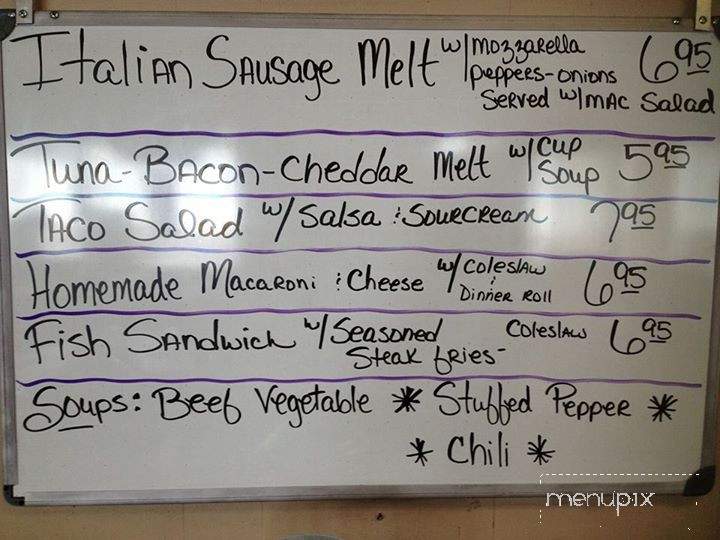 Italian Sausage Melt w/ mozzarella peppers-onions 6.95
Served w/mac Salad
Tuna-Bacon-Cheddar Melt w/ Cup Soup 5.95
Taco Salad w/ Salsa & Sourcream 7.95
Homemade Macaroni & Cheese w/ Coleslaw & Dinner Roll 6.95
Fish Sandwich w/ Seasoned Steak fries- Coleslaw 6.95
Soups: Beef Vegetable * Stuffed Pepper *
* Chili *
menupix